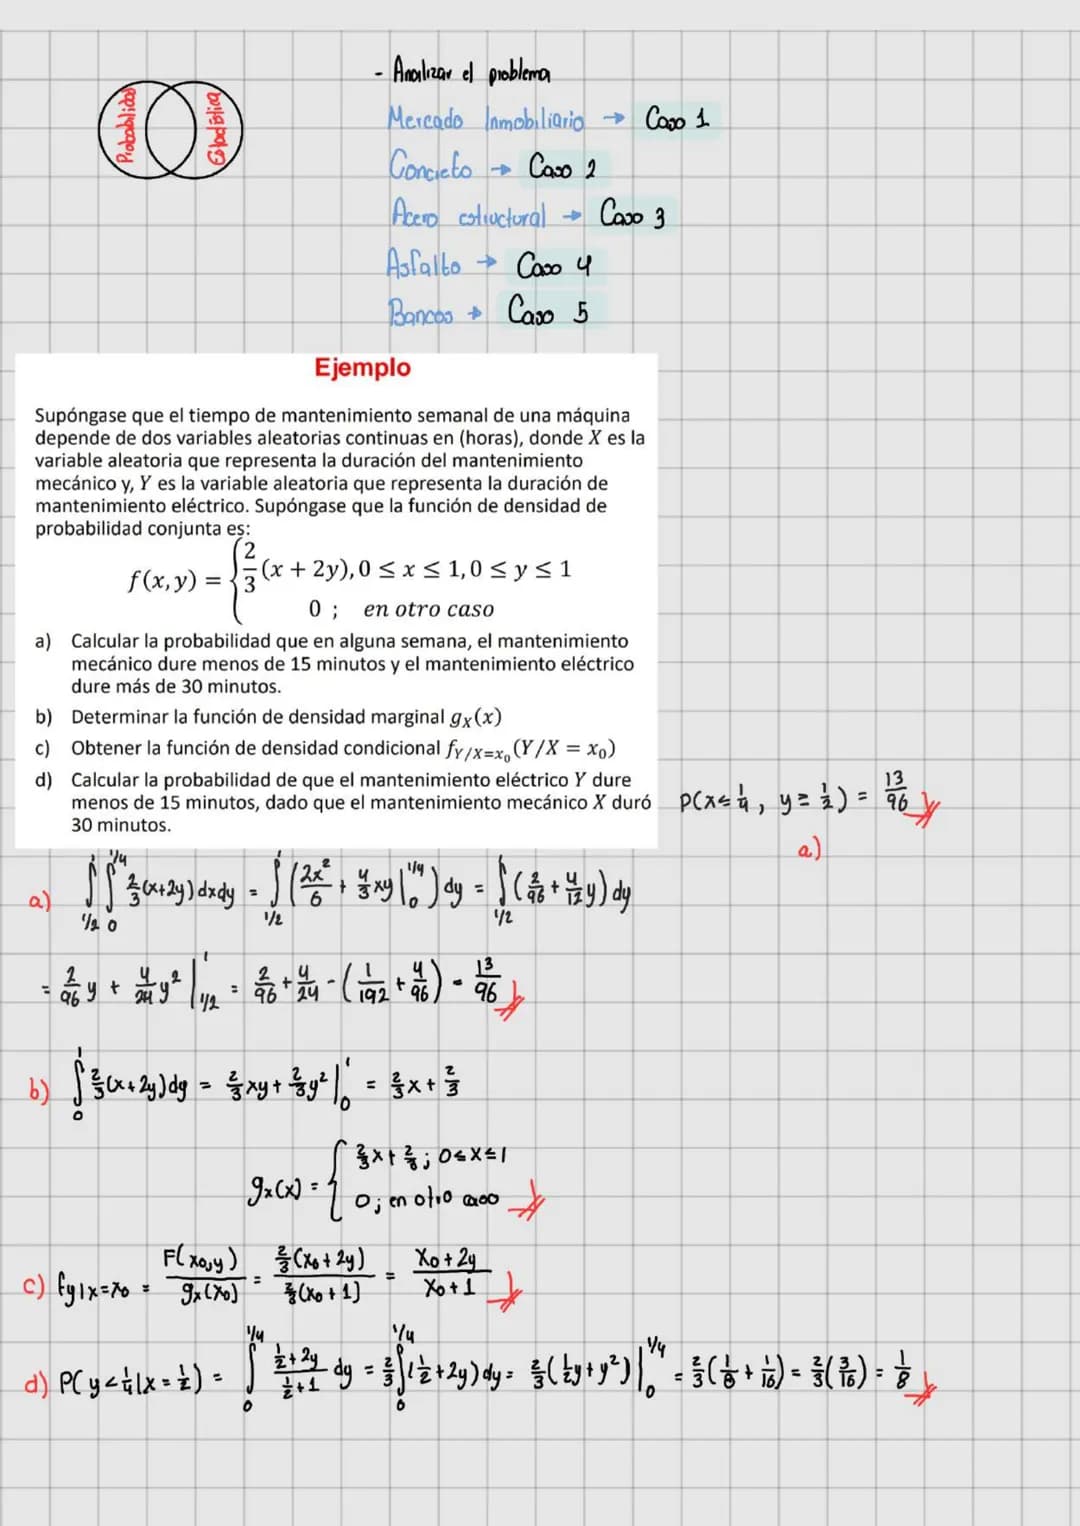 Probabilidad
Estadística
- Analizar el problema
Mercado Inmobiliario → Caso 1
Concreto → Caso 2
Acero estructural → Caso 3
Asfalto → Caso 4
Bancos → Caso 5
Ejemplo
Supóngase que el tiempo de mantenimiento semanal de una máquina
depende de dos variables aleatorias continuas en (horas), donde X es la
variable aleatoria que representa la duración del mantenimiento
mecánico y, Y es la variable aleatoria que representa la duración de
mantenimiento eléctrico. Supóngase que la función de densidad de
probabilidad conjunta es:
f(x, y) = { 2/3 (x + 2y), 0 ≤ x ≤ 1, 0 ≤ y ≤ 1
0 ; en otro caso
a) Calcular la probabilidad que en alguna semana, el mantenimiento
mecánico dure menos de 15 minutos y el mantenimiento eléctrico
dure más de 30 minutos.
b) Determinar la función de densidad marginal gX(x)
c) Obtener la función de densidad condicional fY/X=x₀(Y/X = x₀)
d) Calcular la probabilidad de que el mantenimiento eléctrico Y dure
menos de 15 minutos, dado que el mantenimiento mecánico X duró
30 minutos.
P(x≤1/4, y≥1/2) = 13/96
a)
a) ∫_{1/2}^{1} ∫_{0}^{1/4} 2/3(x+2y)dxdy = ∫_{1/2}^{1} (2x²/6 + 4/3 xy |_{0}^{1/4}) dy = ∫_{1/2}^{1} (2/96 + 4/12 y) dy
= 2/96 y + 4/24 y² |_{1/2}^{1} = 2/96 + 4/24 - (1/192 + 4/96) = 13/96
b) ∫_{0}^{1} 2/3(x+2y)dy = 2/3 xy + 2/3 y² |_{0}^{1} = 2/3 x + 2/3
gx(x) = { 2/3 x + 2/3 ; 0≤x≤1
0; en otro caso
c) fy|x=x₀ = F(x₀,y)/gx(x₀) = 2/3(x₀+2y)/2/3(x₀+1) = x₀+2y/x₀+1
d) P(y<1/4|x=1/2) = ∫_{0}^{1/4} (1/2+2y)/(1/2+1) dy = 2/3 ∫_{0}^{1/4} (1/2+2y)dy = 2/3(1/2 y + y²)|_{0}^{1/4} = 2/3(1/8 + 1/16) = 2/3(3/16) = 1/8